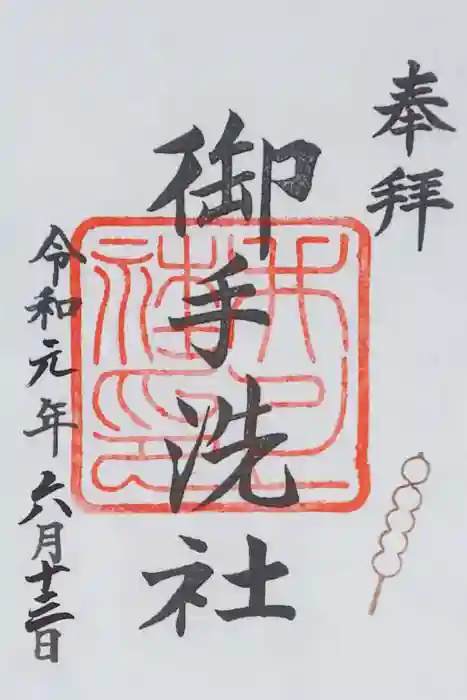 奉拝
御手洗社
令和元年六月十三日